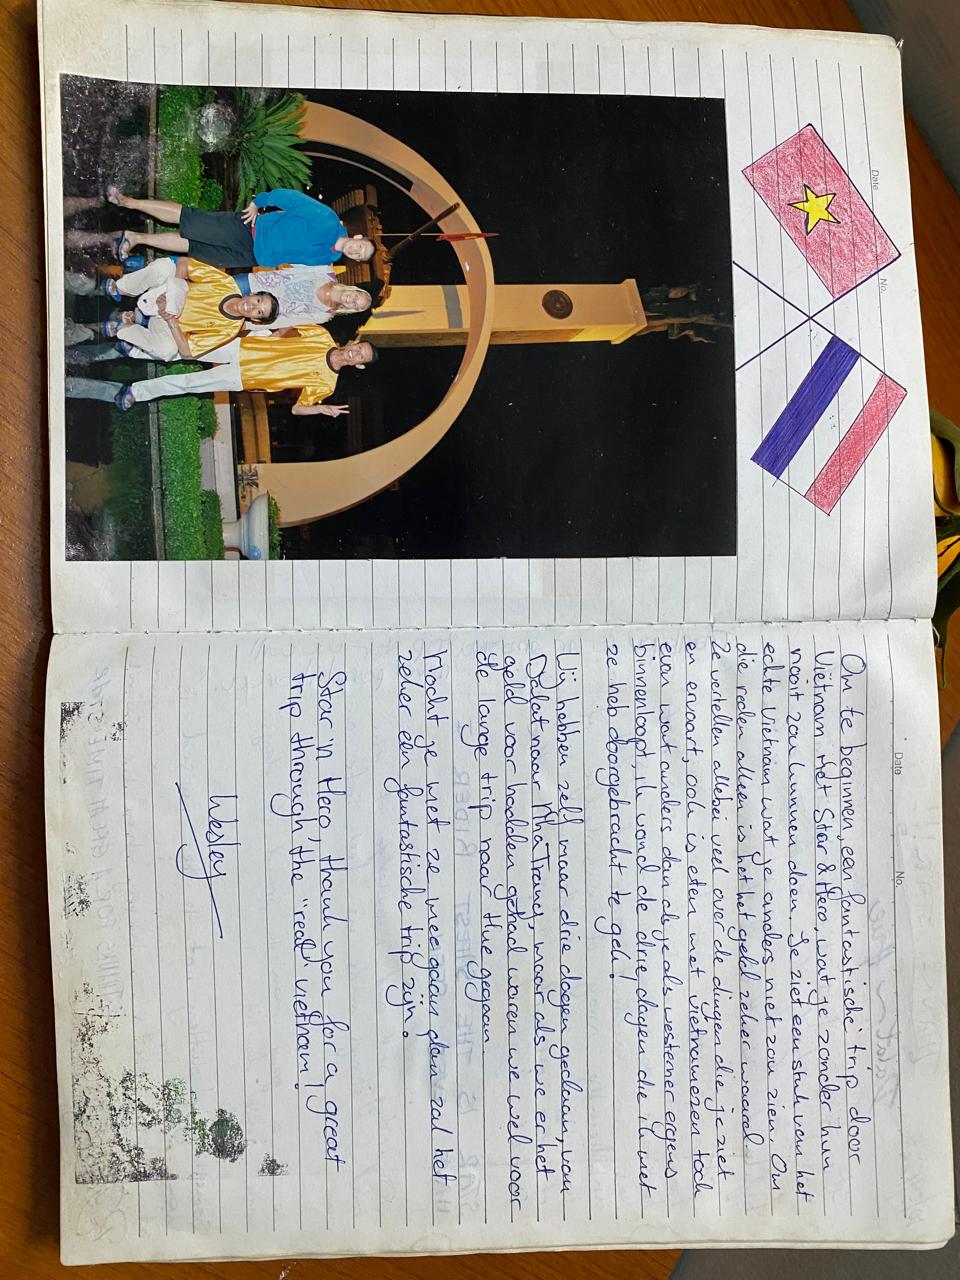 Date
No.
Date
No.
Om te beginnen, een fantastische trip door
Viëtnam met Star & Hero, wat je zonder hun
nooit zou kunnen doen. Je ziet een stuk van het
echte Vietnam wat je anders niet zou zien. Om
die reden alleen is het het geld zeker waard
Ze vertellen allebei veel over de dingen die je ziet
en ervaart, ook is eten met vietnamezen toch
even wat anders dan als je als westerner ergens
binnenloopt, ik vond de drie dagen die ik met
ze heb doorgebracht te gek!
Wij hebben zelf maar drie dagen gedaan, van
Dalat naar Nha Trang, maar als we er het
geld voor hadden gehad waren we wel voor
de lange trip naar Hue gegaan.
Mocht je met ze meegaan dan zal het
zeker een fantastische trip zijn.
Star 'n Hero, thank you for a great
trip through, the "real" vietnam!
Wesley